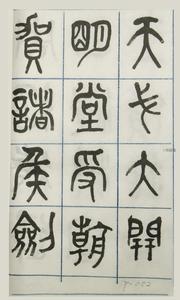 天戈大開
明堂受朝
賀諸侯劍